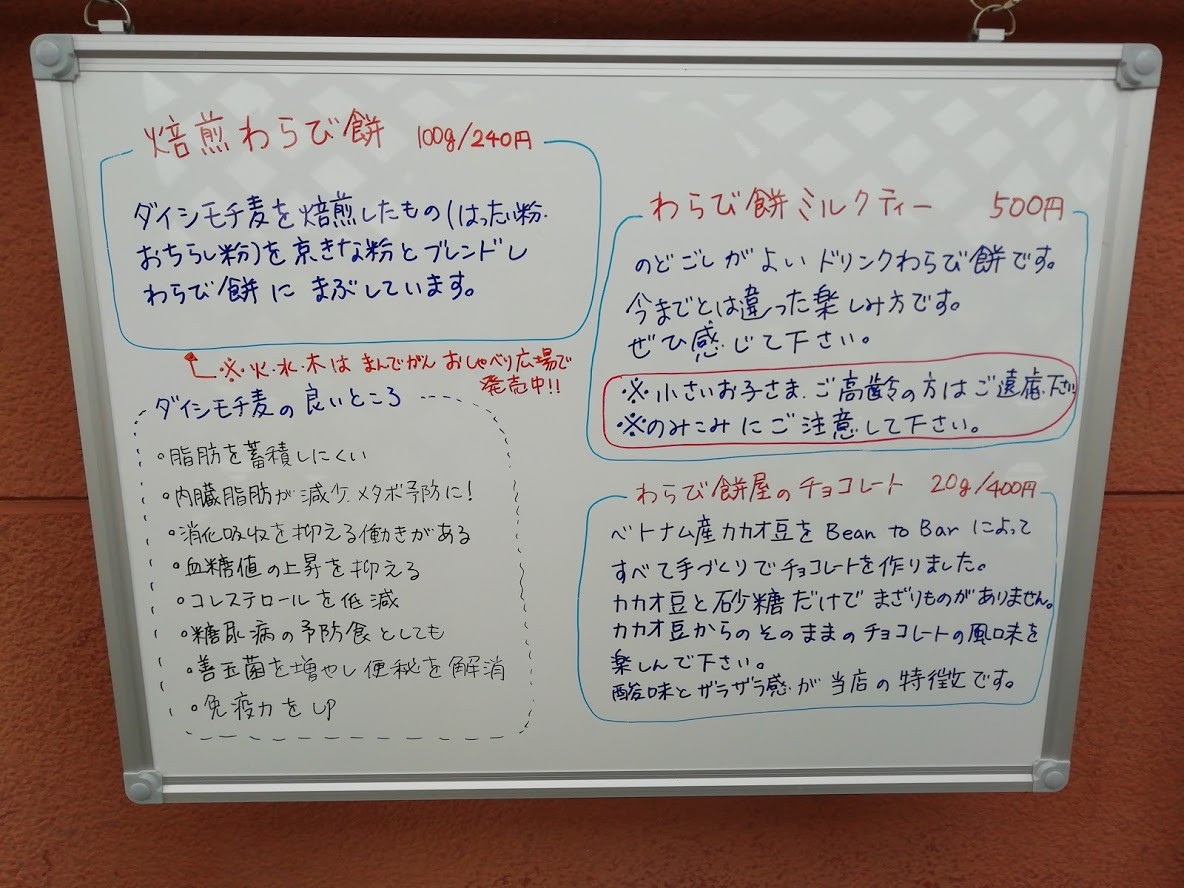 焙煎わらび餅 100g/240円
ダイシモチ麦を焙煎したもの(はったい粉・
おちらし粉)を京きな粉とブレンドし
わらび餅に まぶしています。
※火・水・木は まんでがん おしゃべり広場で
発売中!!
ダイシモチ麦の良いところ
・脂肪を蓄積しにくい
・内臓脂肪が減少、メタボ予防に!
・消化吸収を抑える働きがある
・血糖値の上昇を抑える
・コレステロールを低減
・糖尿病の予防食としても
・善玉菌を増やし便秘を解消
・免疫力をUP
わらび餅ミルクティー 500円
のどごしがよいドリンクわらび餅です。
今までとは違った楽しみ方です。
ぜひ感じて下さい。
※小さいお子さま、ご高齢の方はご遠慮下さい
※のみこみにご注意して下さい。
わらび餅屋のチョコレート 20g/400円
ベトナム産カカオ豆を Bean to Bar によって
すべて手づくりでチョコレートを作りました。
カカオ豆と砂糖だけで まざりものがありません。
カカオ豆からのそのままのチョコレートの風味を
楽しんで下さい。
酸味とザラザラ感が当店の特徴です。